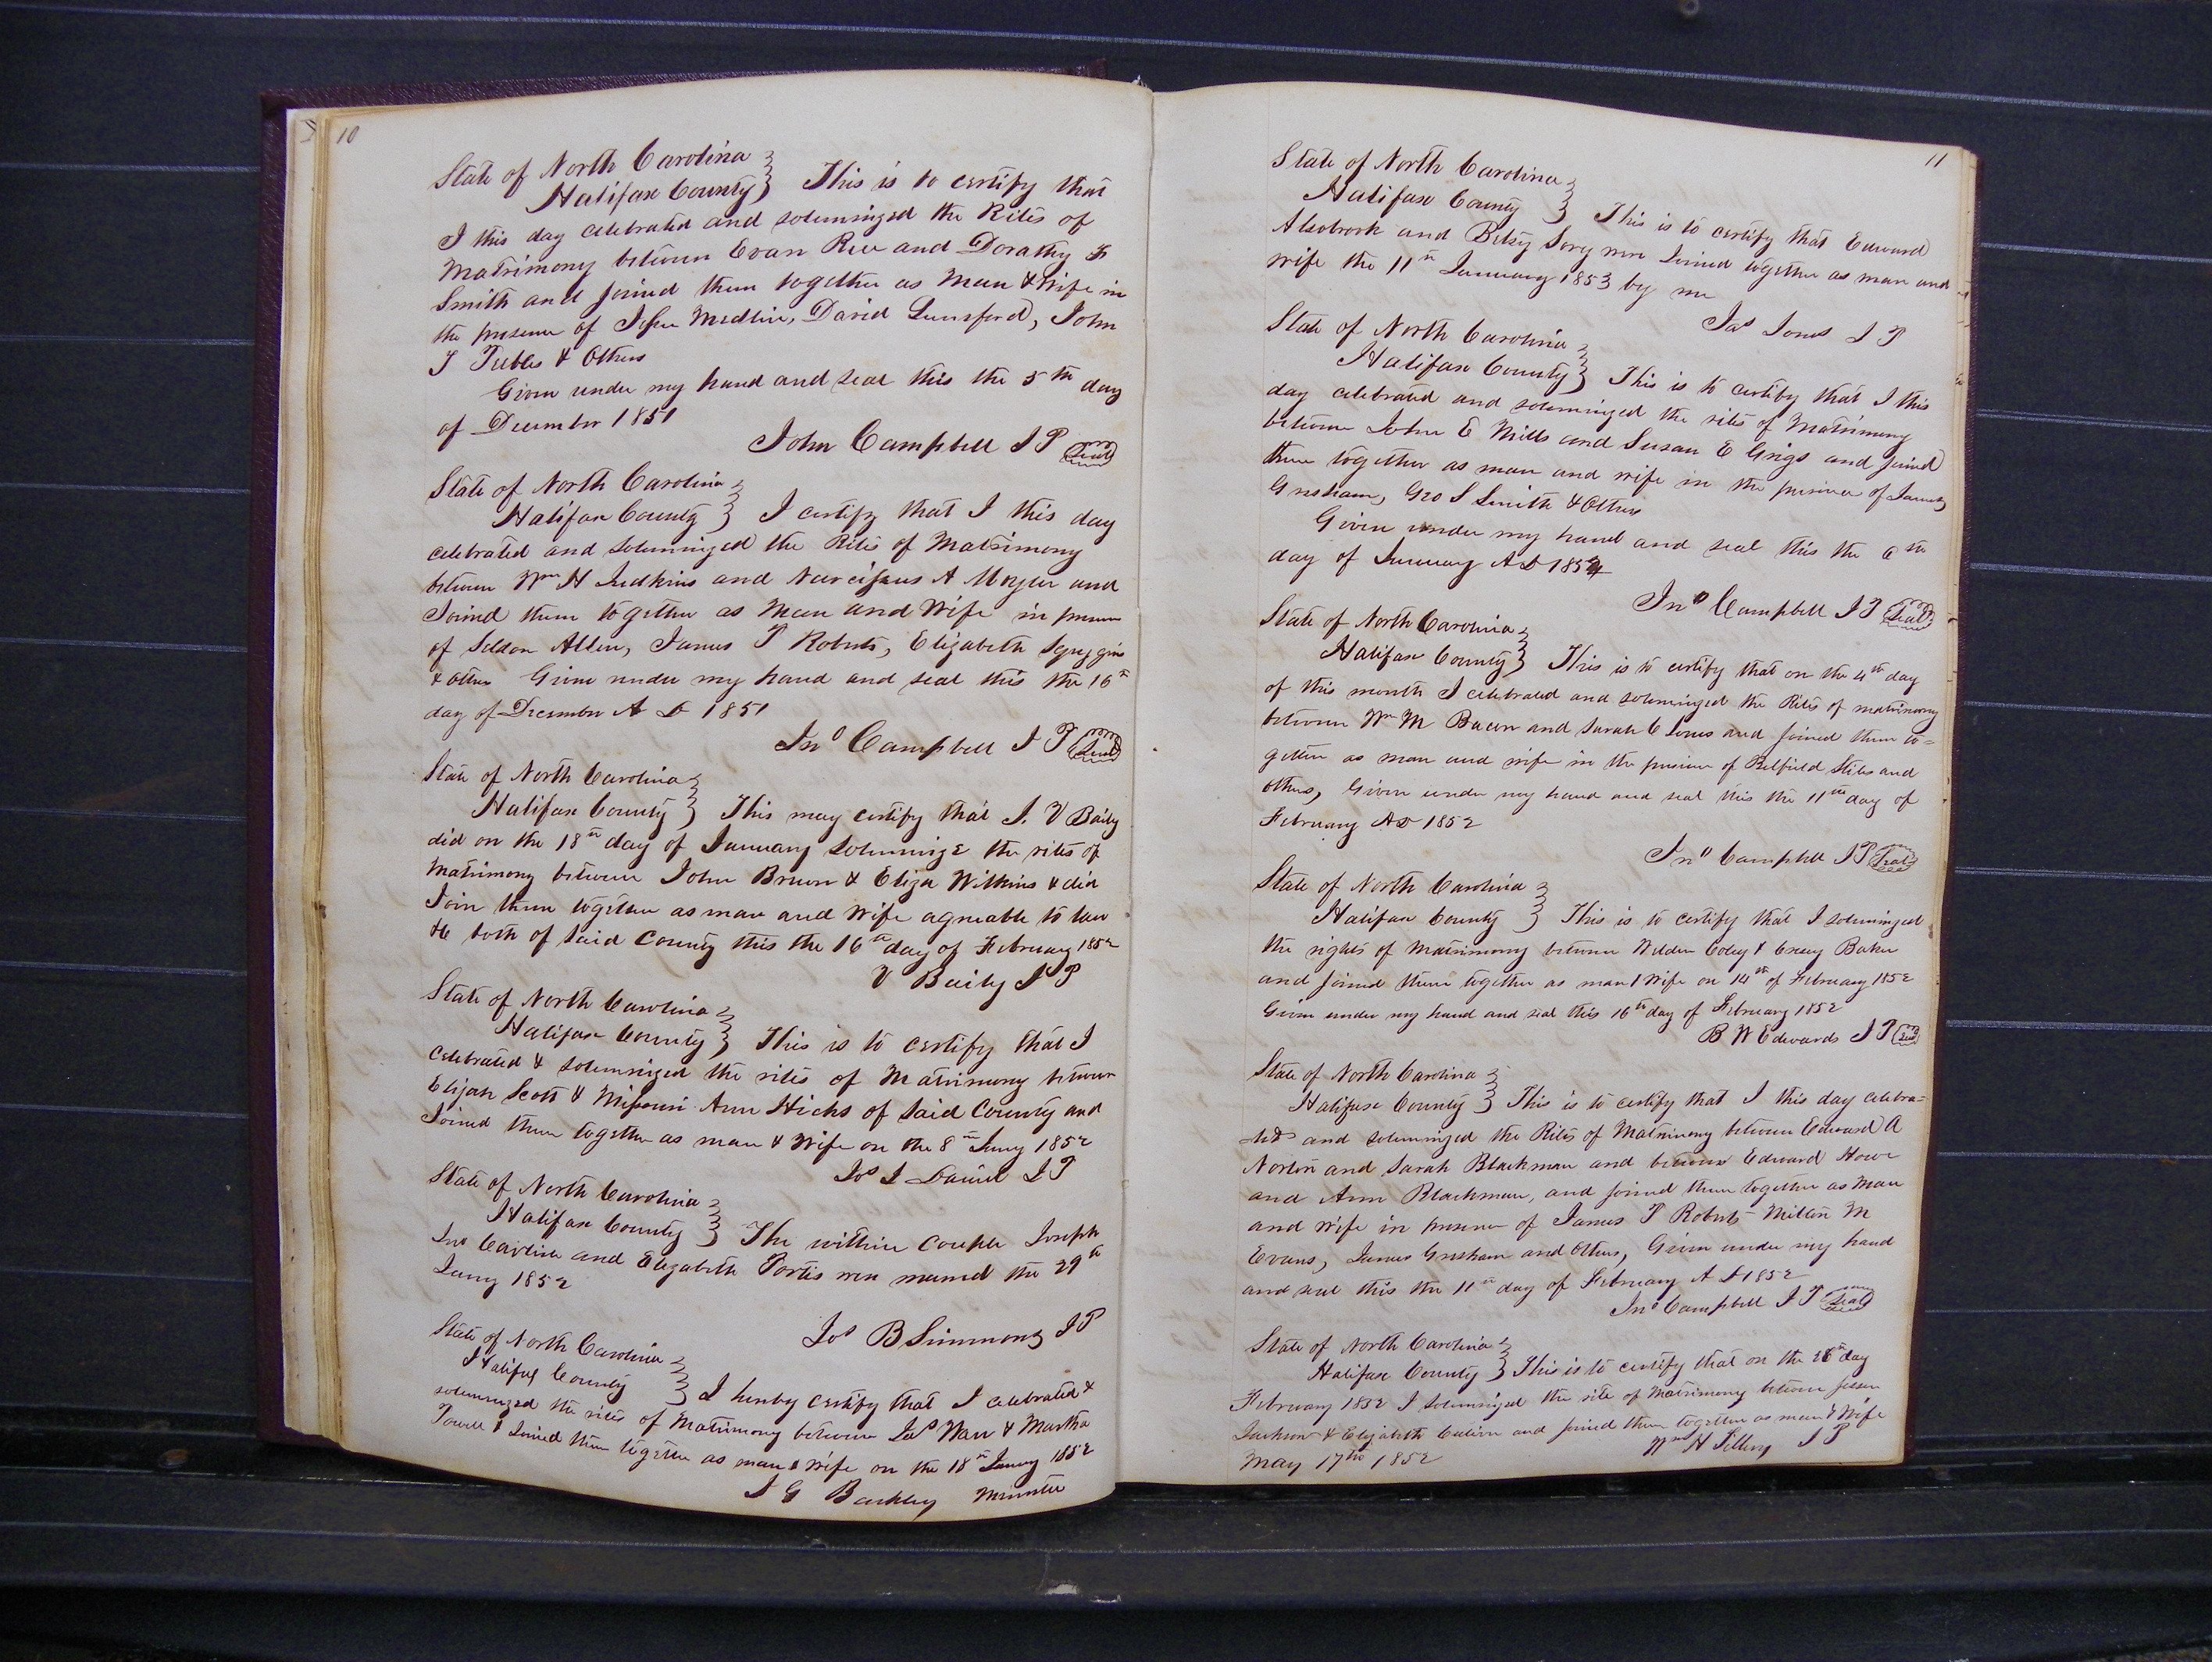 10
State of North Carolina
Halifax County } This is to certify that
I this day celebrated and solemnized the Rites of
Matrimony between Evan Ree and Dorathy F
Smith and joined them together as Man & Wife in
the presence of Jesse Medlin, David Lunsford, John
J Tubbs & Others
Given under my hand and seal this the 5th day
of December 1851
John Campbell J P Seal
State of North Carolina
Halifax County } I certify that I this day
celebrated and solemnized the Rites of Matrimony
between Wm H Judkins and Narcissus A Moyler and
Joined them together as Man and Wife in presence
of Seldon Allen, James T Roberts, Elizabeth
& others Given under my hand and seal this the 16th
day of December A D 1851
Jno Campbell J P Seal
State of North Carolina
Halifax County } This may certify that I. V Baily
did on the 18th day of January solemnize the rites of
Matrimony between John Brown & Eliza Wilkins & did
Join them together as man and wife agreable to law
&c both of said County this the 16th day of February 1852
V Baily J P
State of North Carolina
Halifax County } This is to certify that I
celebrated & solemnized the rites of Matrimony between
Elijah Scott & Missouri Ann Hicks of said County and
Joined them together as man & Wife on the 8th Jany 1852
Jos J Daniel J P
State of North Carolina
Halifax County } The within couple Joseph
Jno Carlisle and Elizabeth Portis were married the 29th
Jany 1852
Jos B Simmons J P
State of North Carolina
Halifax County } I hereby certify that I celebrated &
solemnized the rites of Matrimony between Jas Warr & Martha
Powell & Joined them together as man & wife on the 18th Jany 1852
J G Barkley Minister
11
State of North Carolina
Halifax County } This is to certify that Edward
Alsobrook and Betsy Sory were Joined together as man and
wife the 11th January 1853 by me
Jas Jones J P
State of North Carolina
Halifax County } This is to certify that I this
day celebrated and solemnized the rites of Matrimony
between John E Mills and Susan E Grigs and joined
them together as man and wife in the presence of James
Gresham, Geo S Smith & Others
Given under my hand and seal this the 6th
day of January A D 1852
Jno Campbell J P Seal
State of North Carolina
Halifax County } This is to certify that on the 4th day
of this month I celebrated and solemnized the Rites of matrimony
between Wm M Bacon and Sarah C Jones and joined them to=
gether as man and wife in the presence of Belfield Stiles and
others, Given under my hand and seal this the 11th day of
February A D 1852
Jno Campbell J P Seal
State of North Carolina
Halifax County } This is to certify that I solemnized
the rights of Matrimony between Weldon Coley & Creasy Baker
and joined them together as man & Wife on 14th of February 1852
Given under my hand and seal this 16th day of February 1852
B W Edwards J P Seal
State of North Carolina
Halifax County } This is to certify that I this day celebra=
ted and solemnized the Rites of Matrimony between Edward A
Norton and Sarah Blackman and between Edward Howe
and Ann Blackman, and joined them together as Man
and Wife in presence of James T Roberts Milton M
Evans, James Gresham and Others, Given under my hand
and seal this the 11th day of February A D 1852
Jno Campbell J P Seal
State of North Carolina
Halifax County } This is to certify that on the 26th day
February 1852 I solemnized the rite of Matrimony between
Jackson & Elizabeth and joined them together as man & Wife
May 17th 1852 Wm H Pillary J P